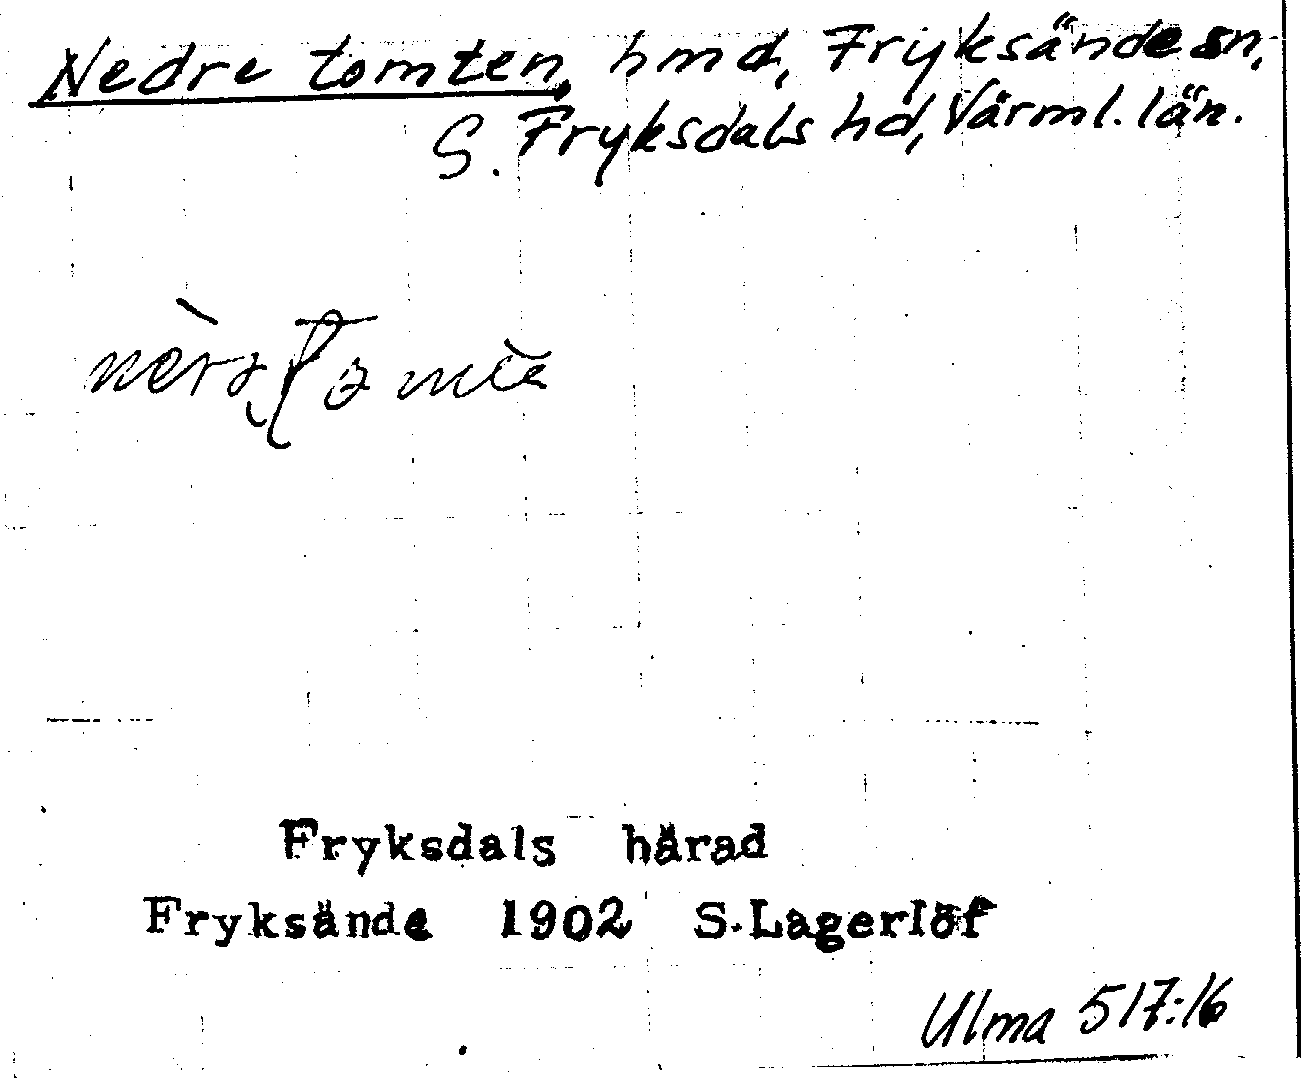 Nedre tomten, hmd, Fryksände sn,
S. Fryksdals hd, Värml. län.
Fryksdals härad
Fryksände 1902 S. Lagerlöf
Ulma 517:16